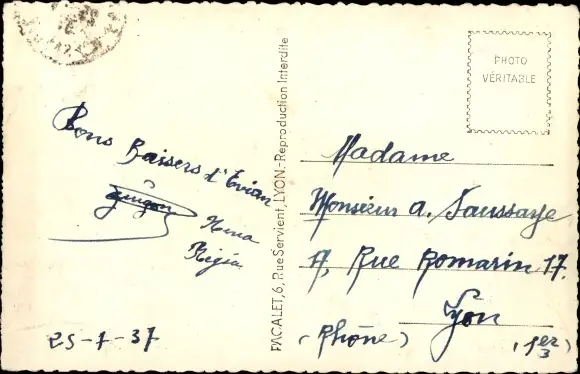 Bons Baisers d'Evian
Nina
Régia
25-7-37
PACALET, 6, Rue Servient, LYON.-Reproduction Interdite
PHOTO
VÉRITABLE
Madame
Monsieur A. Saussaye
17, Rue Romarin 17.
Lyon
(Rhône) (1er)